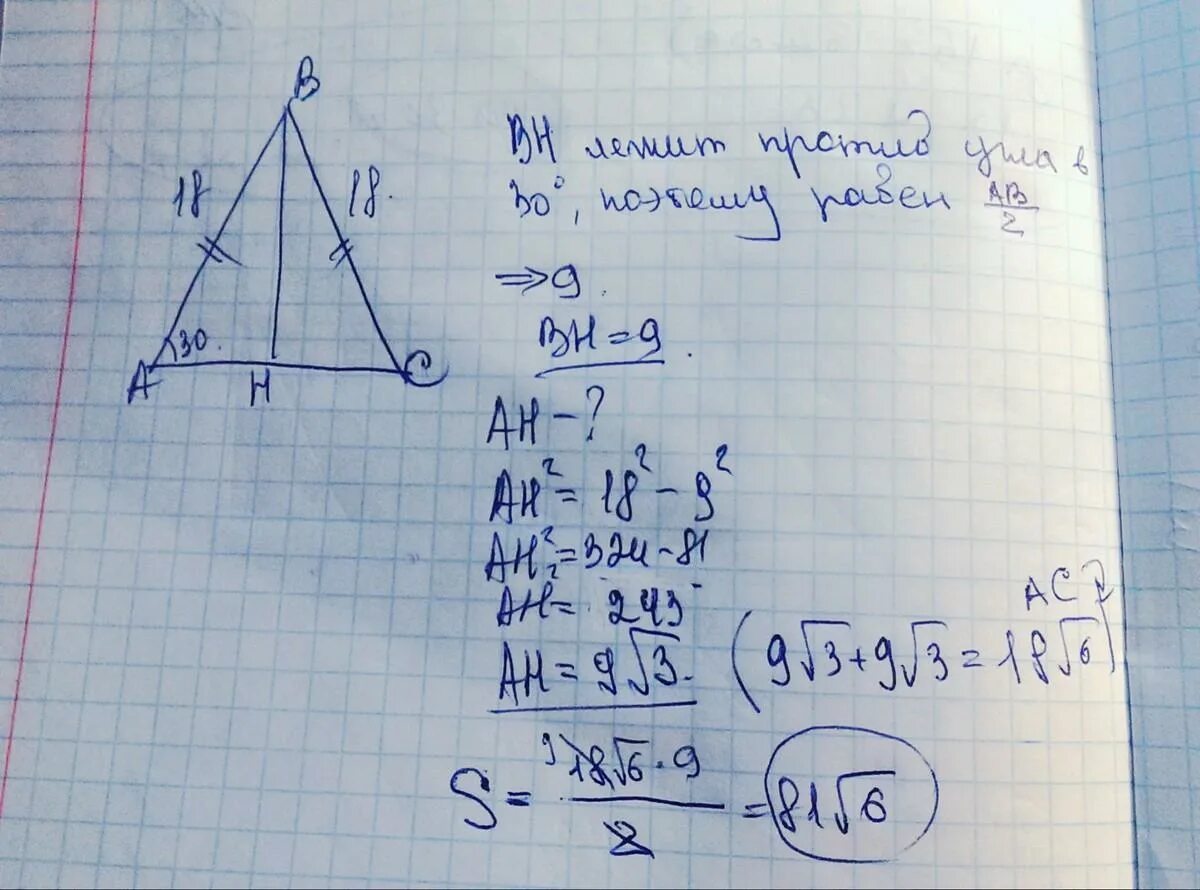 B
18
18.
30.
A
H
C
BH лежит против угла в
30°, поэтому равен AB/2
⇒ 9.
BH = 9.
AH - ?
AH² = 18² - 9²
AH² = 324 - 81
AH² = 243
AH = 9√3.
AC
(9√3 + 9√3 = 18√6)
S = 9 18√6 · 9 / 2 = 81√6